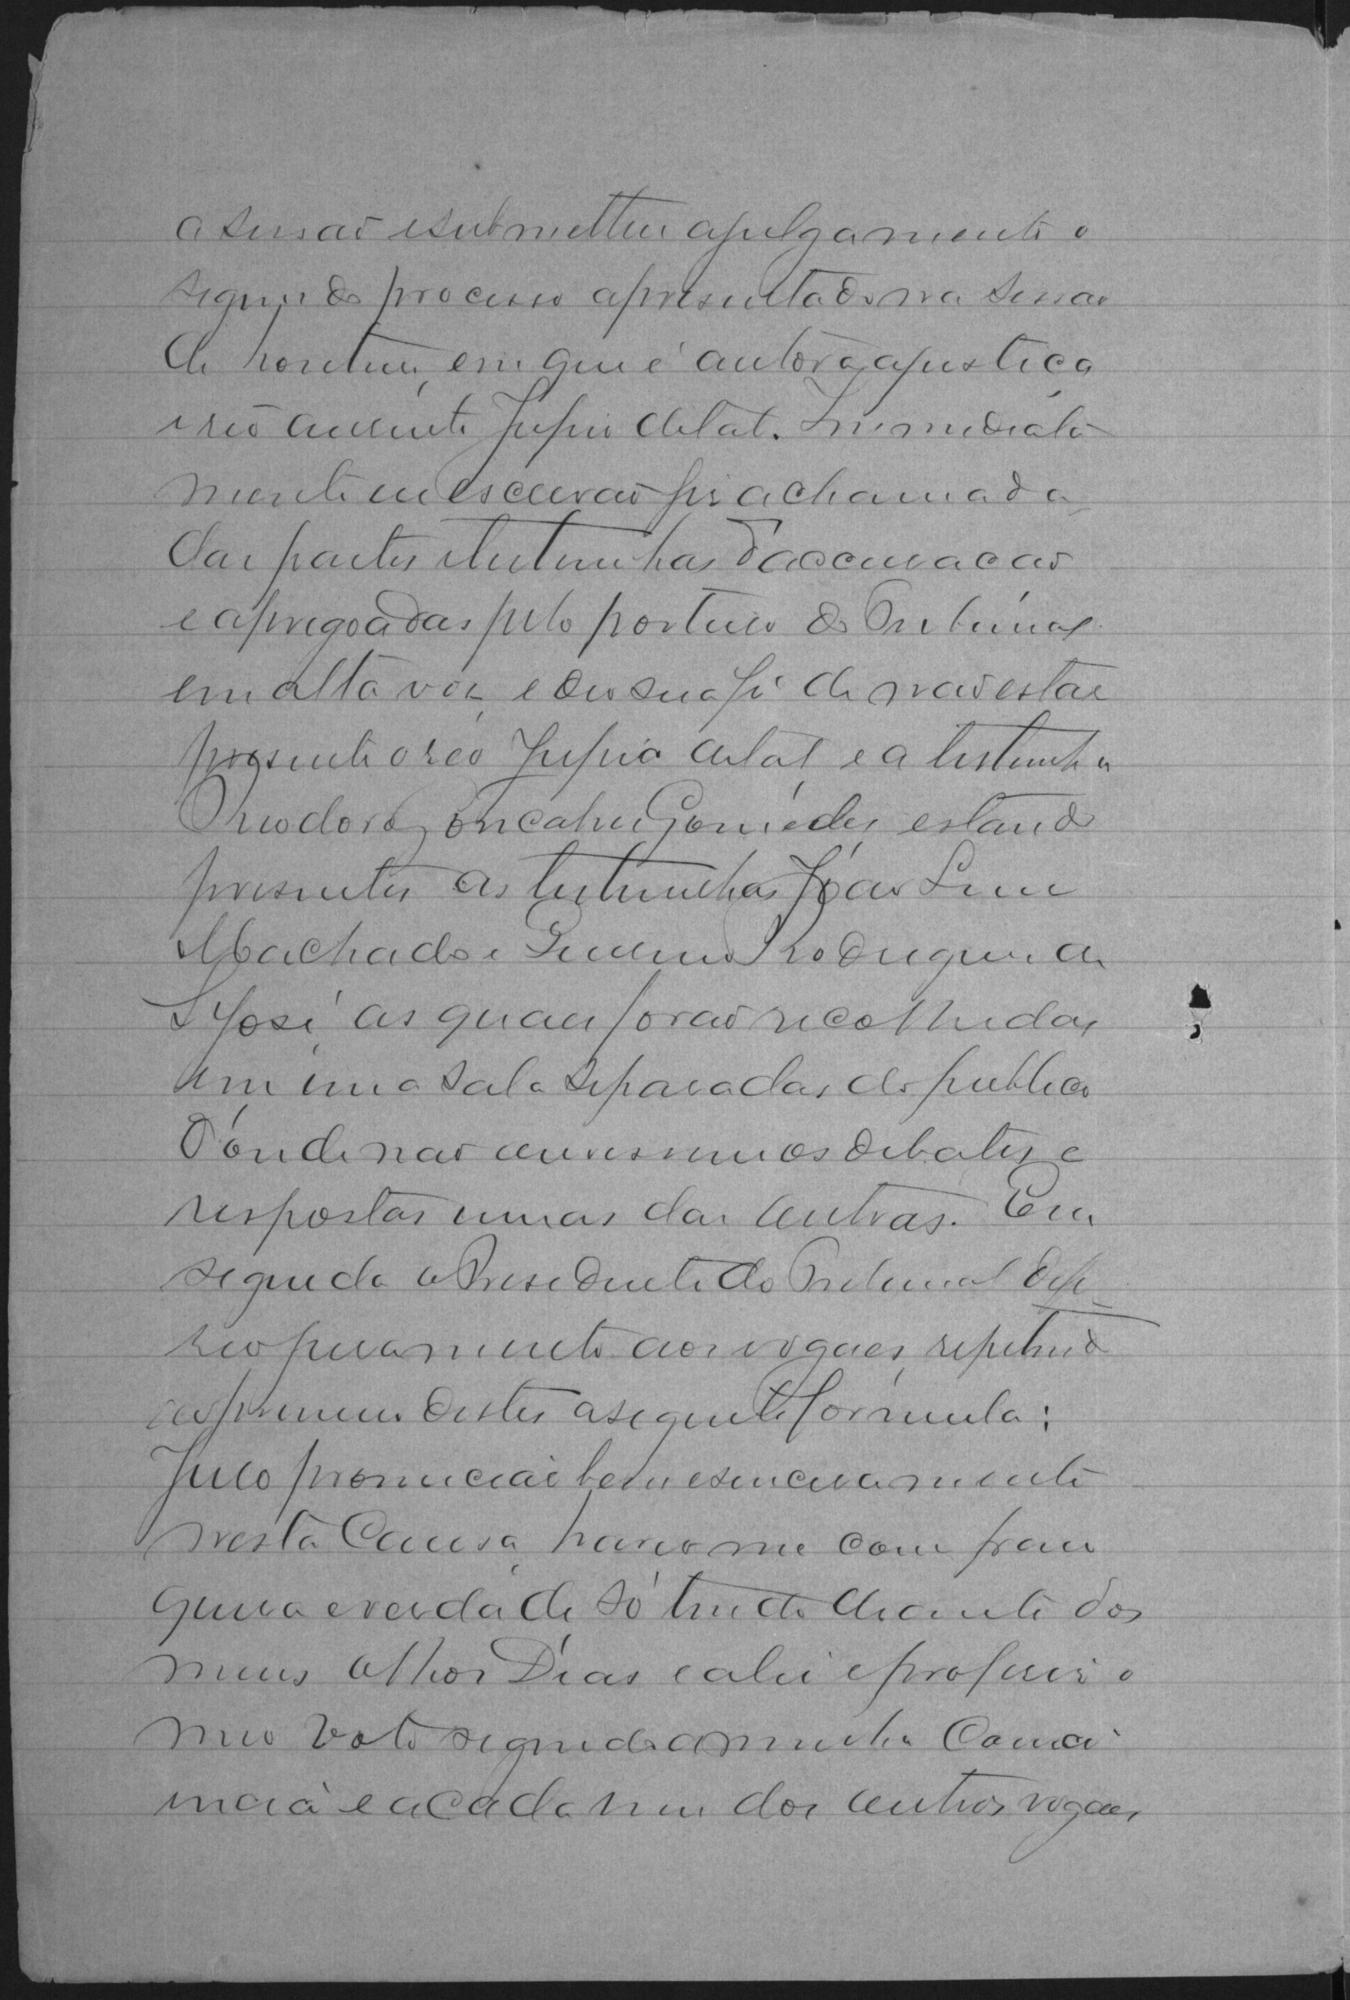 a sessão e submetteu a julgamento o
segundo processo apresentado na sessão
de hontem, em que é autora a justiça
e reo ausente Jupiá de tal. Immediata
mente eu escrivão fiz a chamada
das partes e testemunhas d'accusação
e apregoadas pelo porteiro do Tribunal
em alta voz, e deu sua fé de não estar
presente o reo Jupiá de tal e a testemunha
Theodoro Gonçalves Gomides, estando
presentes as testemunhas João
Machado e Rodrigues de
S. José, as quaes forão recolhidas
em uma sala separadas do publico
d'onde não ouvissem os debates e
respostas umas das outras. Em
seguida o Presidente do Tribunal defe-
rio juramento aos vogaes, repetindo
ao primeiro destes a seguinte formula:
Juro pronunciar bem e sinceramente
nesta Causa, haver-me com fran
queza e verdade só tendo deante dos
meus olhos Deos e a lei e proferir o
meu voto segundo a minha Consci
encia e a cada um dos outros vogaes